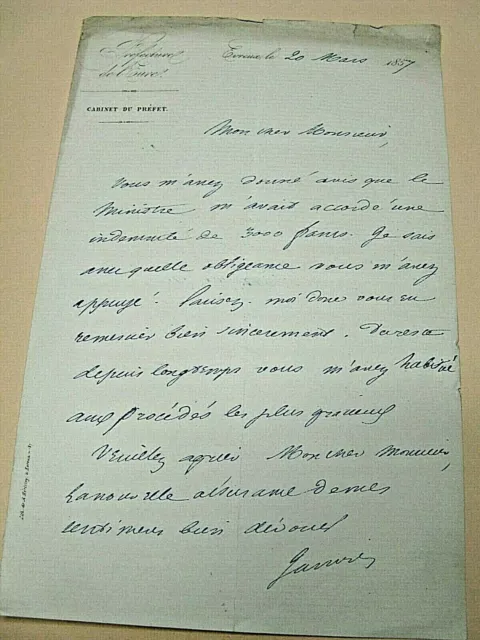 Préfecture
de l'Eure
Evreux, le 20 Mars 1857
CABINET DU PRÉFET.
Mon cher Monsieur,
Vous m'avez donné avis que le
Ministre m'avait accordé une
indemnité de 3000 francs. Je sais
avec quelle obligeance vous m'avez
appuyé. Laissez-moi donc vous en
remercier bien sincèrement. Du reste
depuis longtemps vous m'avez habitué
aux procédés les plus gracieux
Veuillez agréer Mon cher Monsieur,
la nouvelle assurance de mes
sentimens bien dévoués